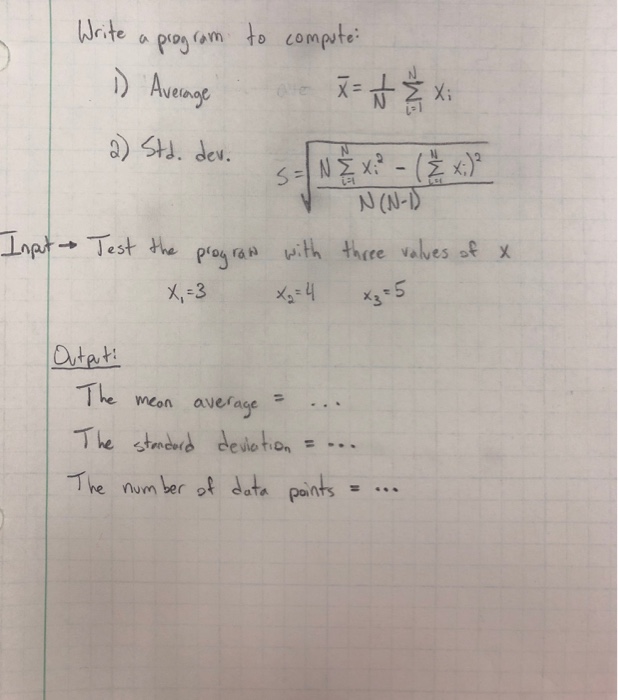 Write a program to compute:
1) Average x̄ = 1/N Σ_{i=1}^{N} x_i
2) Std. dev. S = √((N Σ_{i=1}^{N} x_i² - (Σ_{i=1}^{N} x_i)²) / (N(N-1)))
Input → Test the program with three values of x
x₁=3 x₂=4 x₃=5
Output:
The mean average = ...
The standard deviation = ...
The number of data points = ...